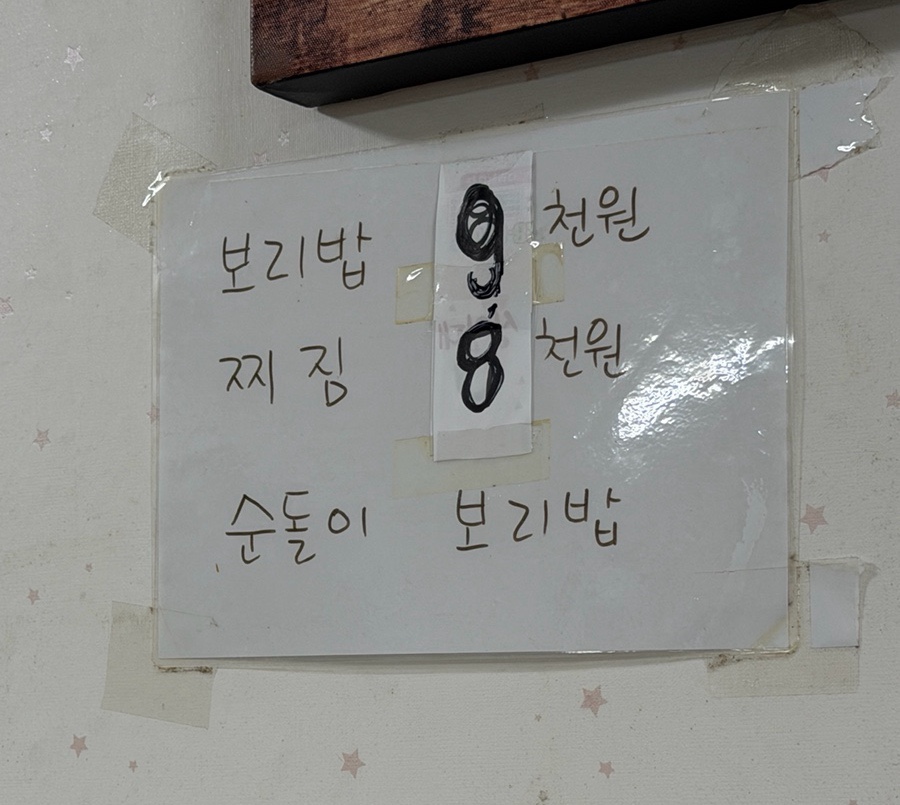 보리밥 9천원
찌짐 8천원
순돌이 보리밥